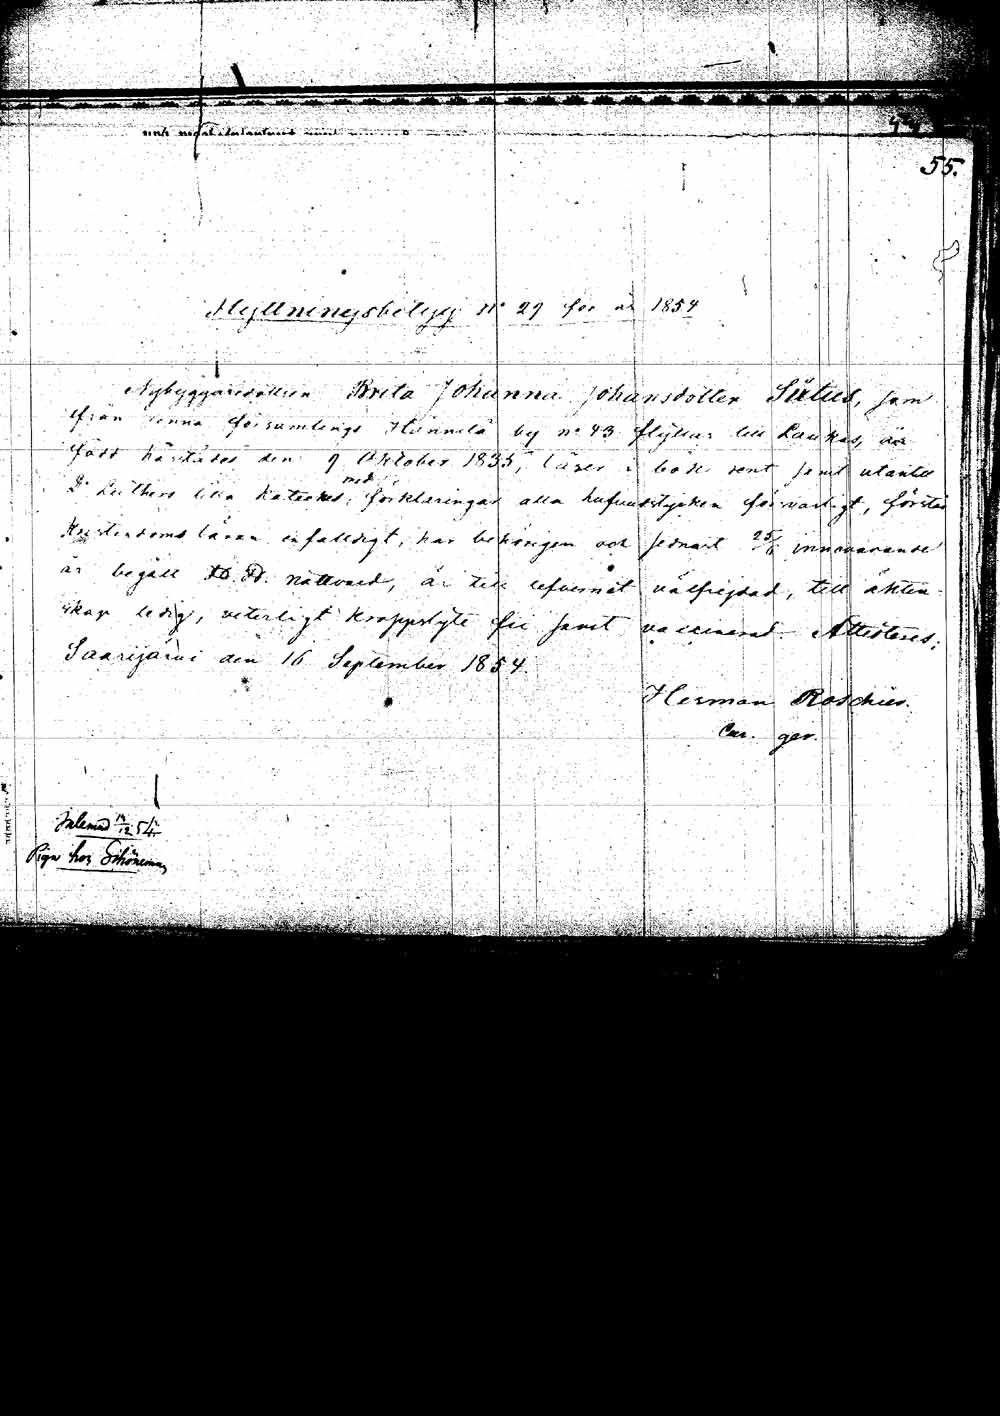 55.
Flyttningsbetyg No 29 för år 1854
Nybyggaredottren Brita Johanna Johansdotter som
ifrån denna församlings by no 43 flyttar till Laukas, är
född härstädes den 9 Oktober 1835, läser i bok rent samt utantill
Dr Luthers lilla Kateches med förklaringar alla hufvudstycken försvarligt, förstår
Kristendoms läran enfaldigt, har behörigen och sednast innevarande
år begått H. H. nattvard, är till lefvernet välfrejdad, till äkten-
skap ledig, veterligt kroppslyte fri samt vaccinerad. Attesteras;
Saarijärvi den 16 September 1854.
Herman Roschier.
Cur. ger.
Inlemnad 14/12 54.
Piga hos